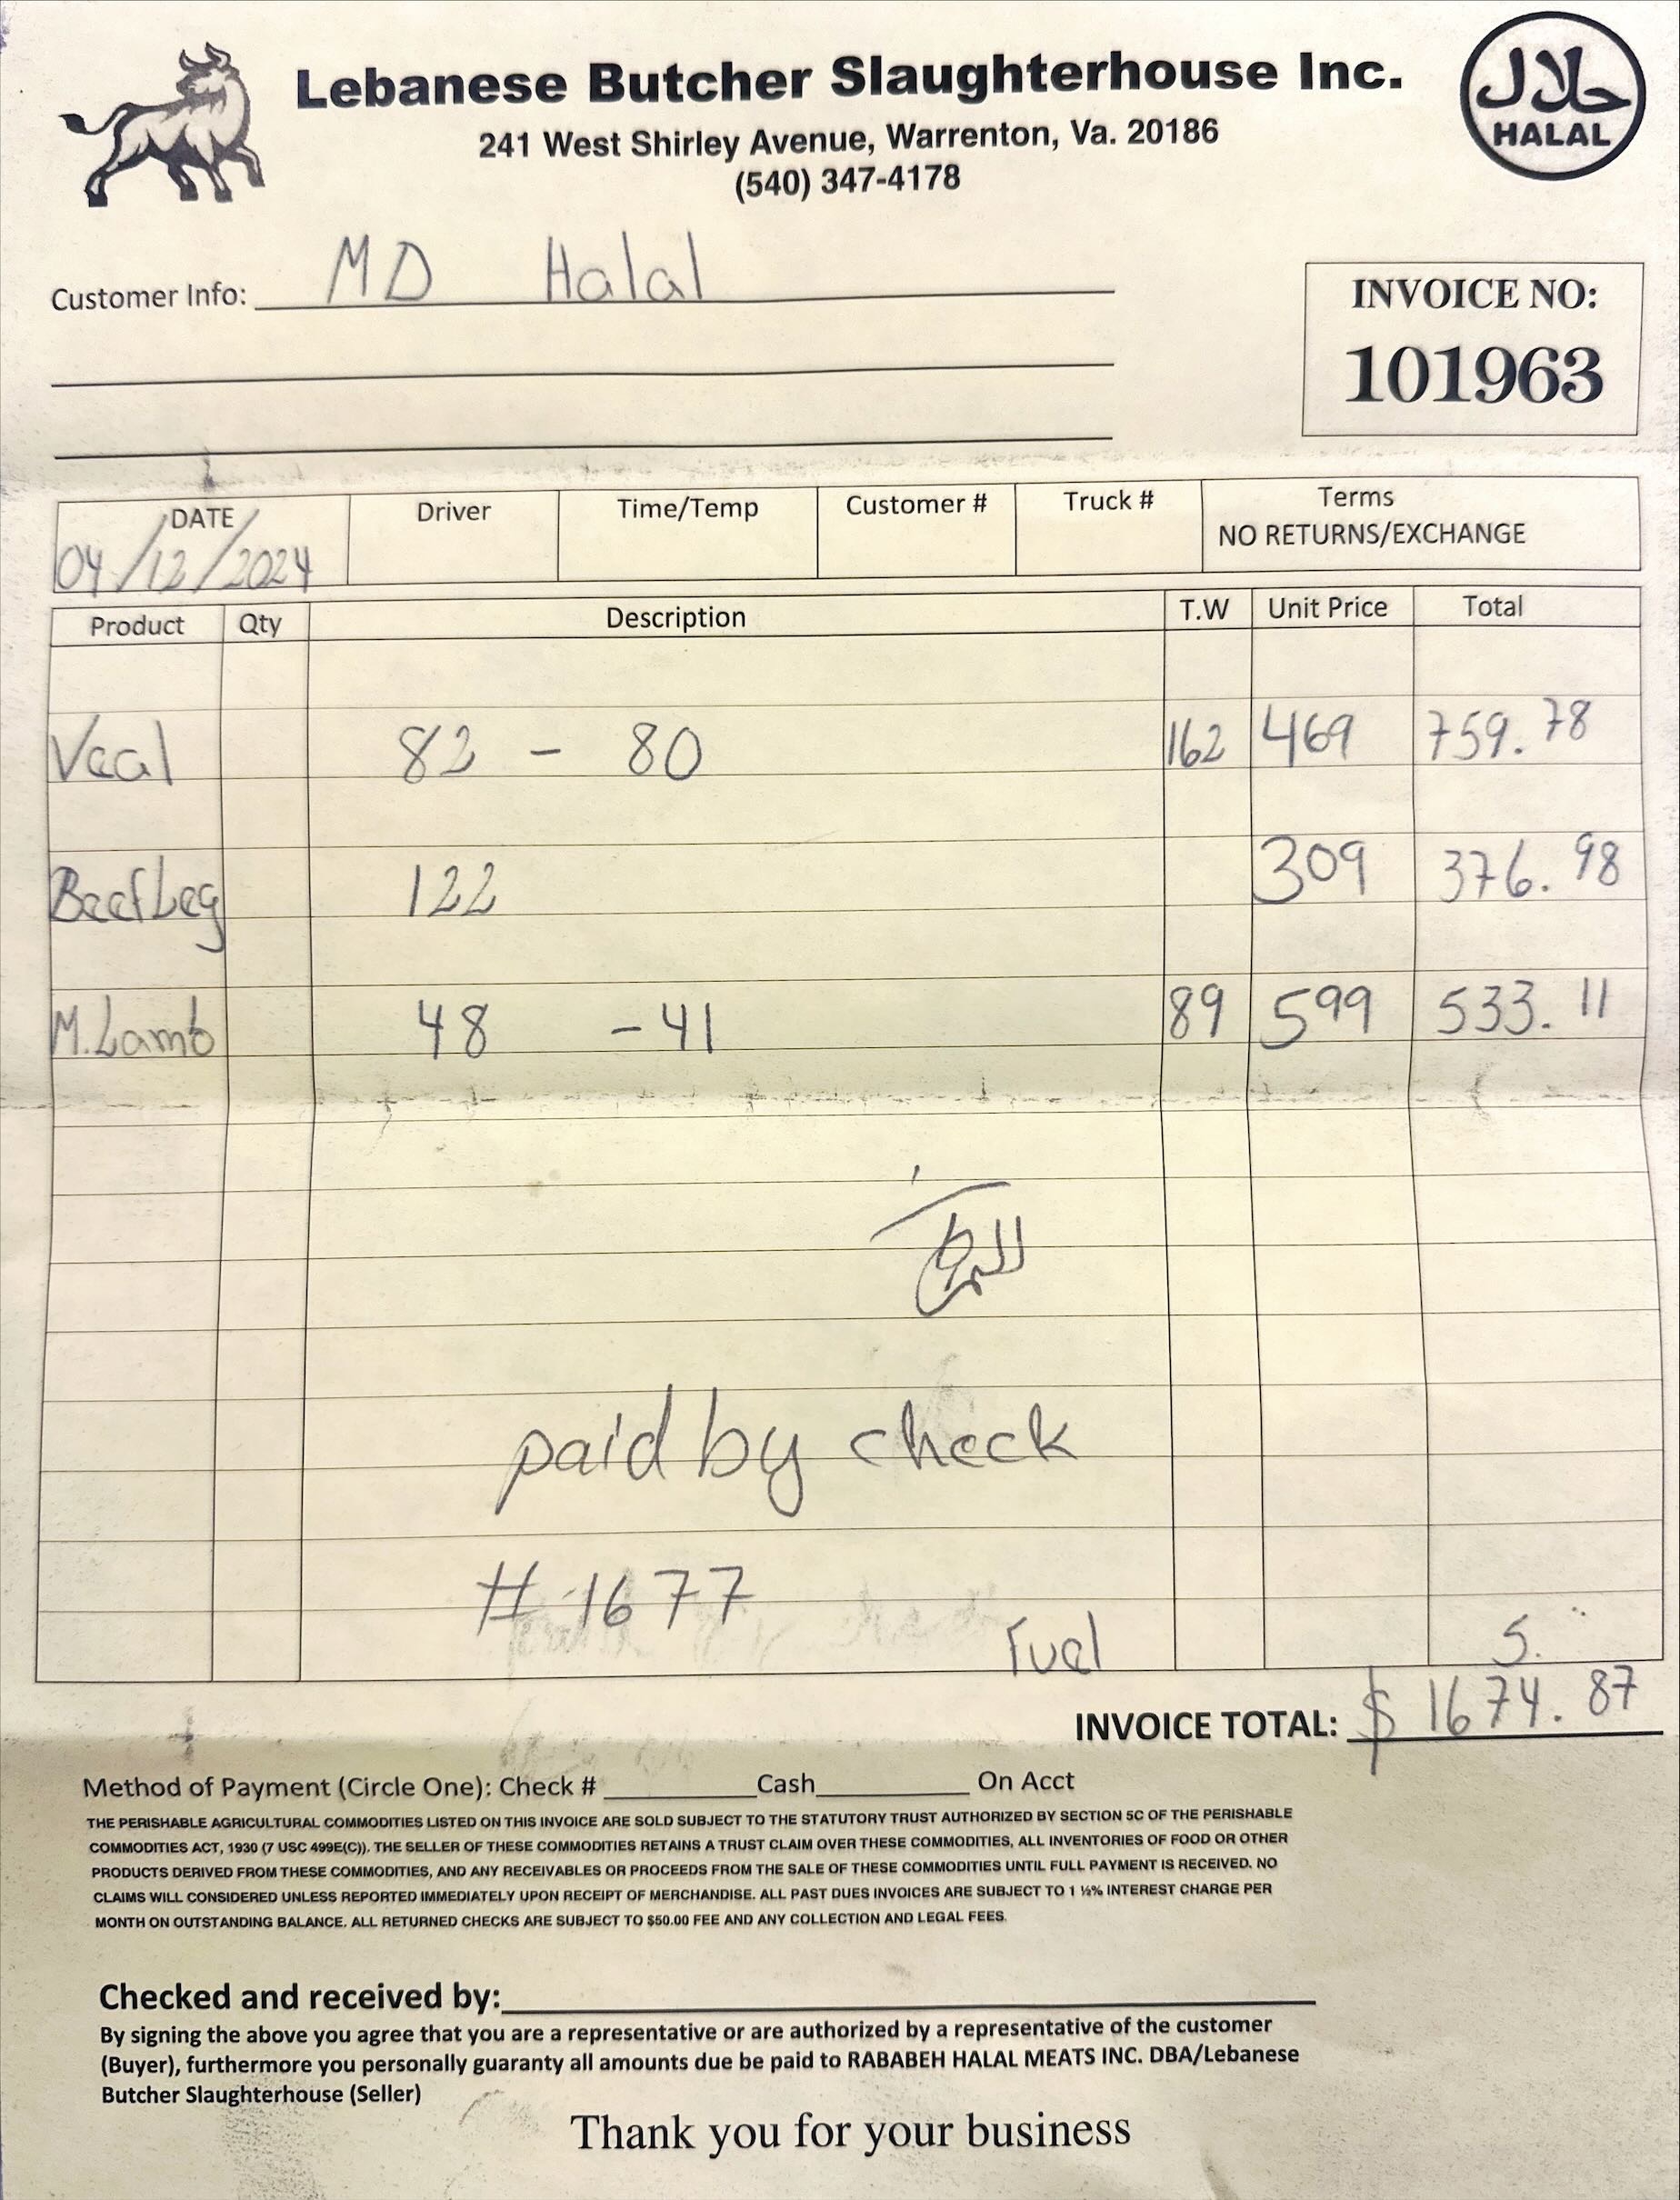 Lebanese Butcher Slaughterhouse Inc.
241 West Shirley Avenue, Warrenton, Va. 20186
(540) 347-4178
حلال
HALAL
Customer Info: MD Halal
INVOICE NO:
101963
DATE Driver Time/Temp Customer # Truck # Terms
04/12/2024 NO RETURNS/EXCHANGE
Product Qty Description T.W Unit Price Total
Veal 82 - 80 162 469 759.78
Beef Leg 122 309 376.98
M.Lamb 48 - 41 89 599 533.11
paid by check
# 1677
Fuel 5.
INVOICE TOTAL: $ 1674.87
Method of Payment (Circle One): Check # ________ Cash ________ On Acct
THE PERISHABLE AGRICULTURAL COMMODITIES LISTED ON THIS INVOICE ARE SOLD SUBJECT TO THE STATUTORY TRUST AUTHORIZED BY SECTION 5C OF THE PERISHABLE
COMMODITIES ACT, 1930 (7 USC 499E(C)). THE SELLER OF THESE COMMODITIES RETAINS A TRUST CLAIM OVER THESE COMMODITIES, ALL INVENTORIES OF FOOD OR OTHER
PRODUCTS DERIVED FROM THESE COMMODITIES, AND ANY RECEIVABLES OR PROCEEDS FROM THE SALE OF THESE COMMODITIES UNTIL FULL PAYMENT IS RECEIVED. NO
CLAIMS WILL CONSIDERED UNLESS REPORTED IMMEDIATELY UPON RECEIPT OF MERCHANDISE. ALL PAST DUES INVOICES ARE SUBJECT TO 1 ½% INTEREST CHARGE PER
MONTH ON OUTSTANDING BALANCE. ALL RETURNED CHECKS ARE SUBJECT TO $50.00 FEE AND ANY COLLECTION AND LEGAL FEES.
Checked and received by:
By signing the above you agree that you are a representative or are authorized by a representative of the customer
(Buyer), furthermore you personally guaranty all amounts due be paid to RABABEH HALAL MEATS INC. DBA/Lebanese
Butcher Slaughterhouse (Seller)
Thank you for your business